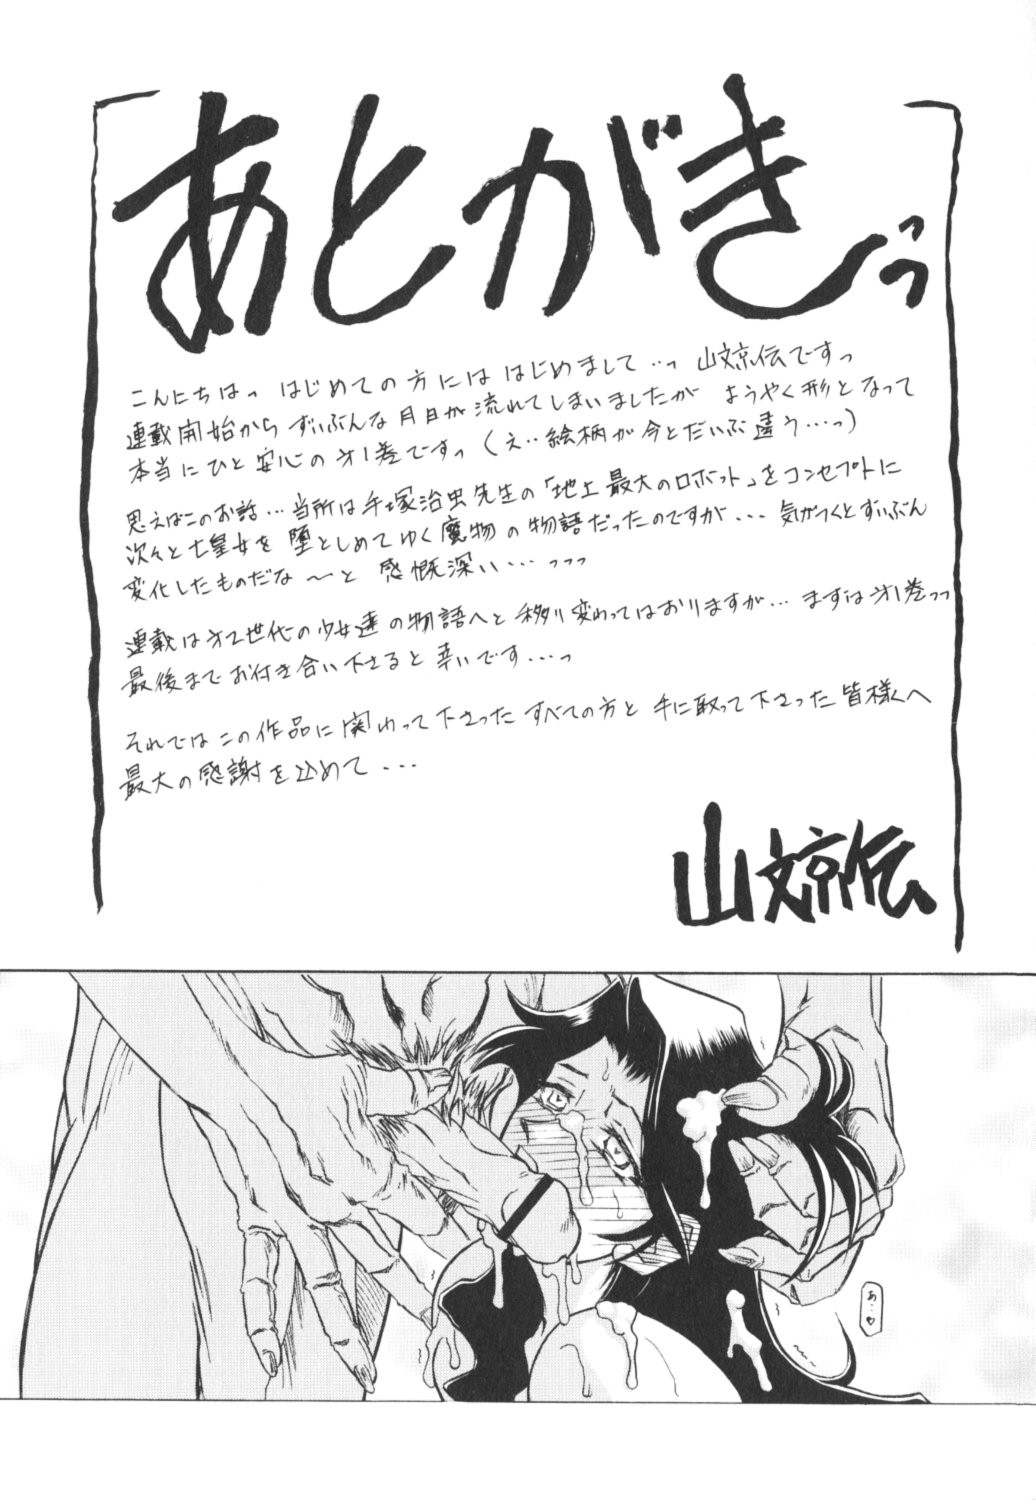 あとがきっ
こんにちはっ はじめての方には はじめまして‥っ 山文京伝ですっ
連載開始から ずいぶんな月日が 流れてしまいましたが ようやく形となって
本当にひと安心の オ1巻ですっ (え‥絵柄が今とだいぶ違う…っ)
思えばこのお話…当所は手塚治虫先生の「地上最大のロボット」をコンセプトに
次々と七皇女を 堕としめてゆく魔物の物語だったのですが... 気がつくとずいぶん
変化したものだな〜と 感慨深い…っっっ
連載はオ2世代の少女達の物語へと 移り変わってはおりますが… まずはオ1巻っっ
最後までお付き合い下さると 幸いです…っ
それでは この作品に関わって下さった すべての方と 手に取って下さった皆様へ
最大の感謝を込めて...
山文京伝
あ…♡